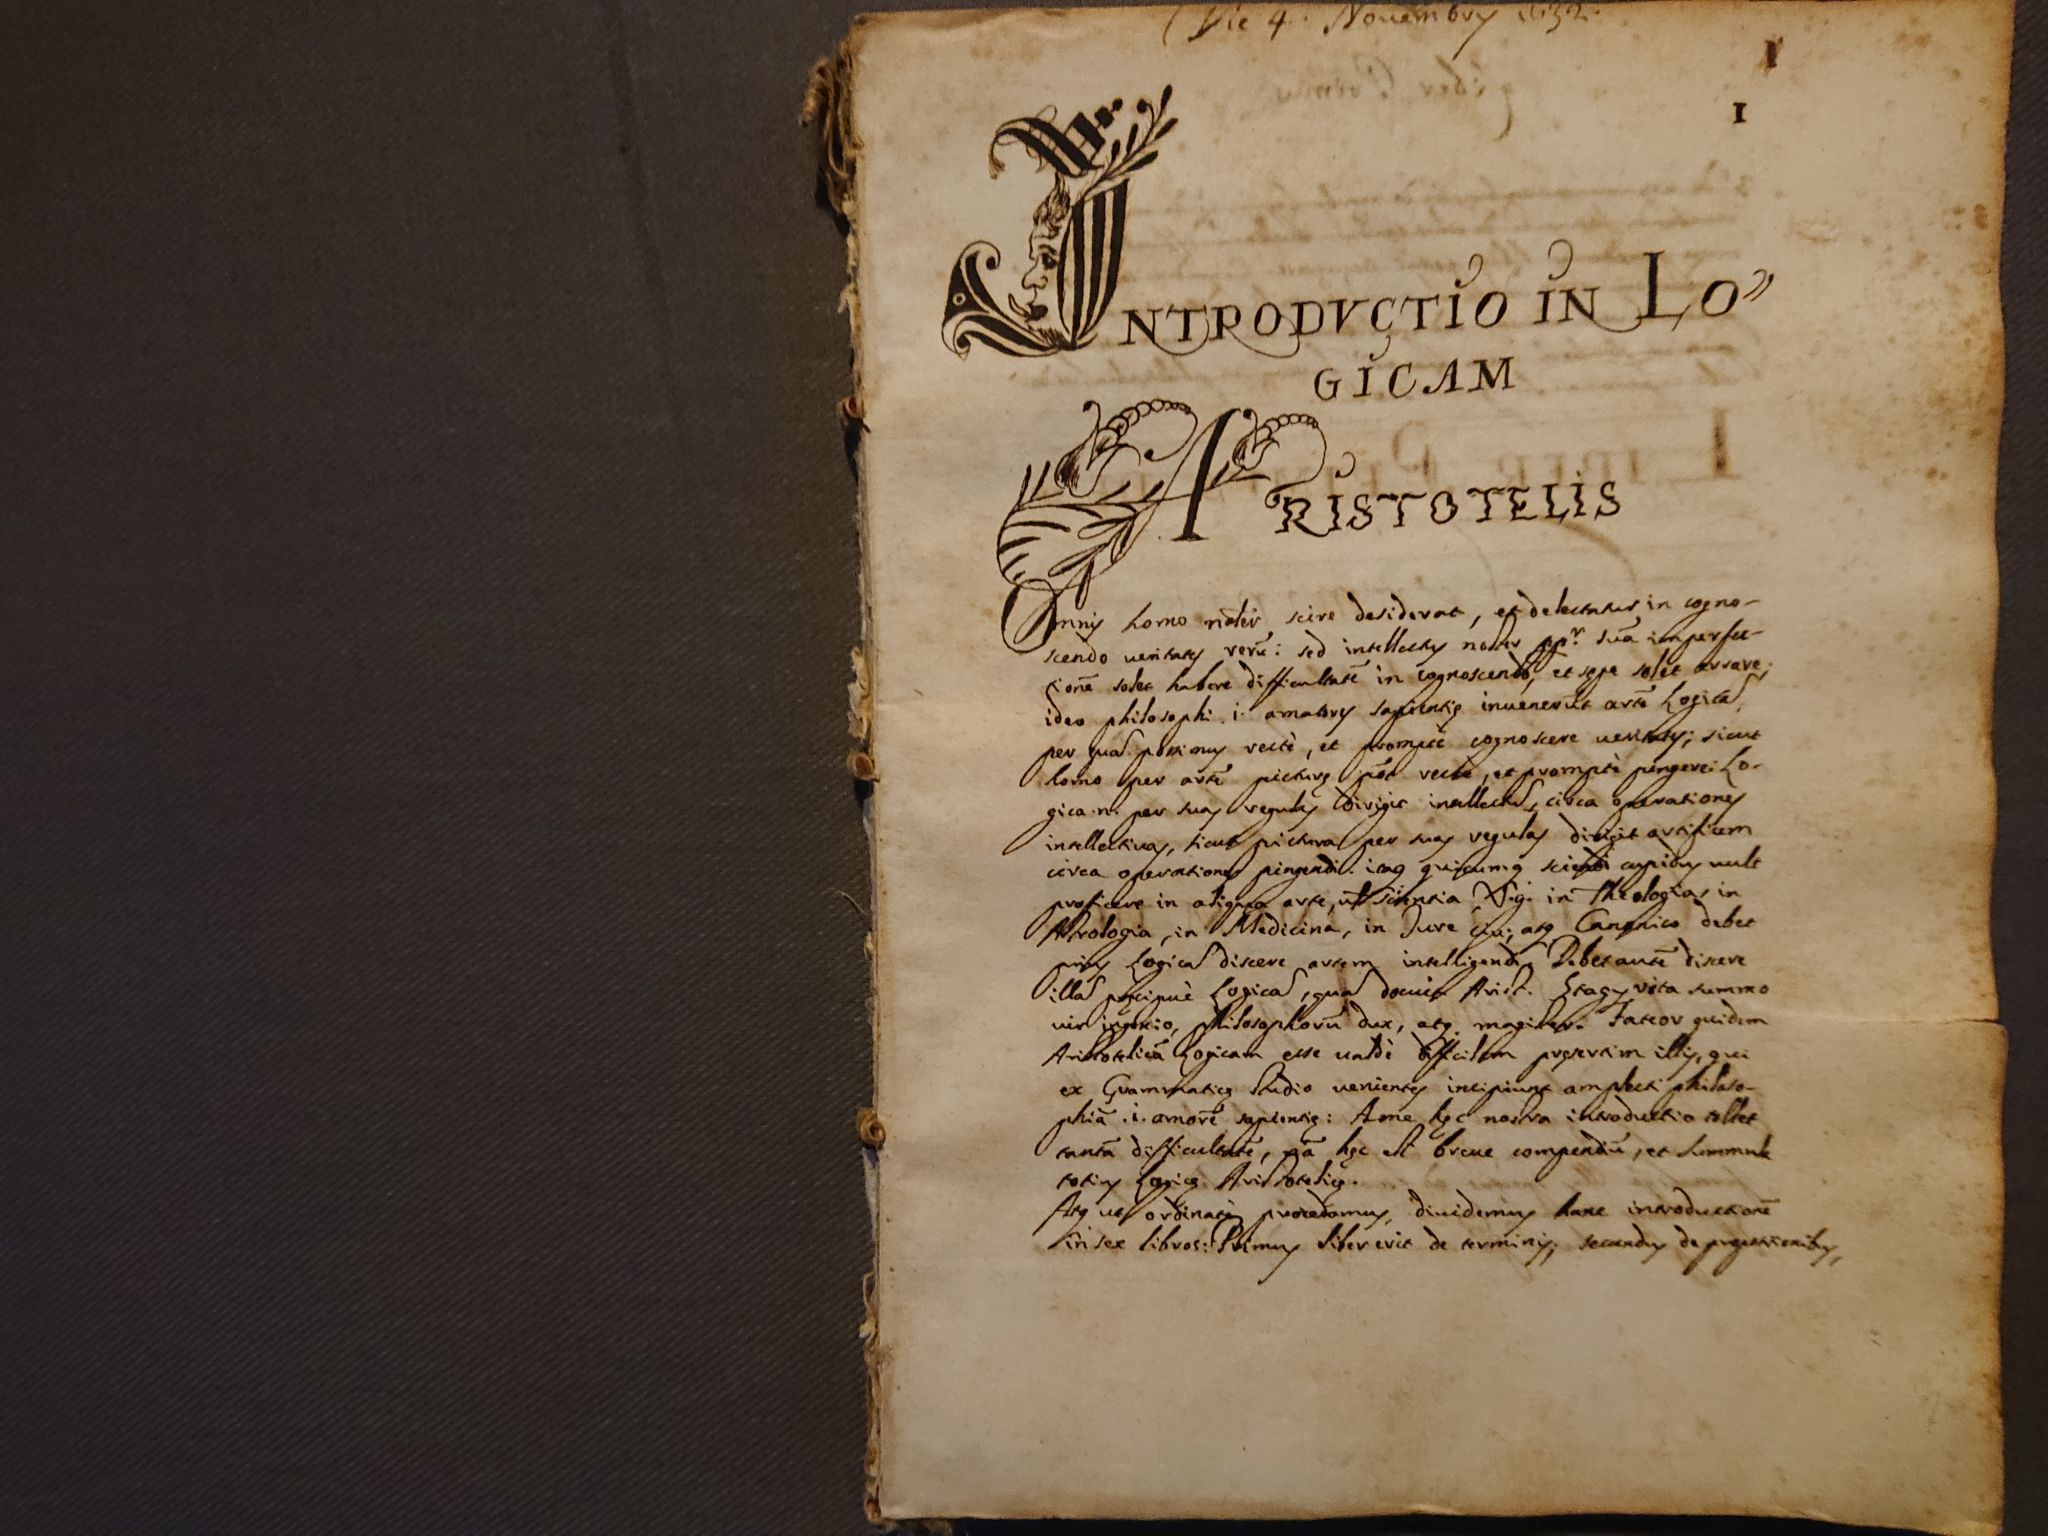 Die 4. Novembry 1632.
I
1
INTRODVCTIO IN LO〃
GICAM
ARISTOTELIS
Omnis homo nāliṫ scire desiderat, et delectatur in cogno-
scendo veritates rerū: sed intellectus noster ppr̃ suā imperfec-
tionē solet habere difficultatē in cognoscendo, et sępe solet errare;
ideo philosophi .i. amatores sapientię inuenerūt artē Logicā,
per quā possimus rectè, et promptè cognoscere veritates; sicut
homo per artē picturę põt rectè, et promptè pingere: Lo-
gica .n. per suas regulas dirigit intellectū, circa operationes
intellectiuas, sicut pictura per suas regulas dirigit artificem
circa operationes pingendi. itaq quicumq sciendi cupidus uult
proficere in aliqua arte, uĺ scientia V.g. in Theologia, in
Astrologia, in Medicina, in Jure ciu; atq Canonico debet
prius Logicā discere artem intelligendi. Debet autē discere
illā pręcipuè Logicā, quā docuit Arist. Stagyrita summo
uir ingenio, philosophorū dux, atq magister. Fateor quidem
Aristotelicā Logicam esse ualdè difficilem pręsertim illis, qui
ex Grammaticę studio uenientes incipiunt amplecti philoso-
phiā .i. amorē sapientię: At hęc nostra introductio tollet
tantā difficultatē, nā hęc est breue compendiū, et summula
totius Logicę Aristotelicę.
Atq ut ordinatè procedamus, diuidemus hanc introductionē
in sex libros: Primus liber erit de terminis, secundus de propositionibus,